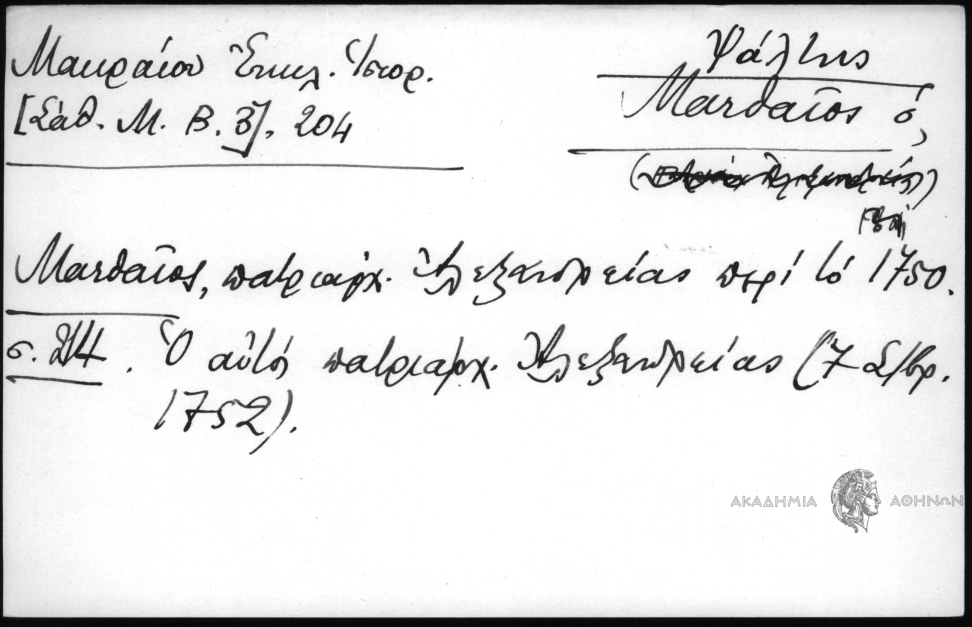 Μακραίου Ἐκκλ. Ἱστορ.
[Σάθ. Μ. Β. 3], 204
Ψάλτης
Ματθαῖος ὁ,
Ματθαῖος, πατριάρχ. Ἀλεξανδρείας περί τό 1750.
σ. 214. Ὁ αὐτός πατριάρχ. Ἀλεξανδρείας (7 Σ/βρ.
1752).
ΑΚΑΔΗΜΙΑ ΑΘΗΝΩΝ